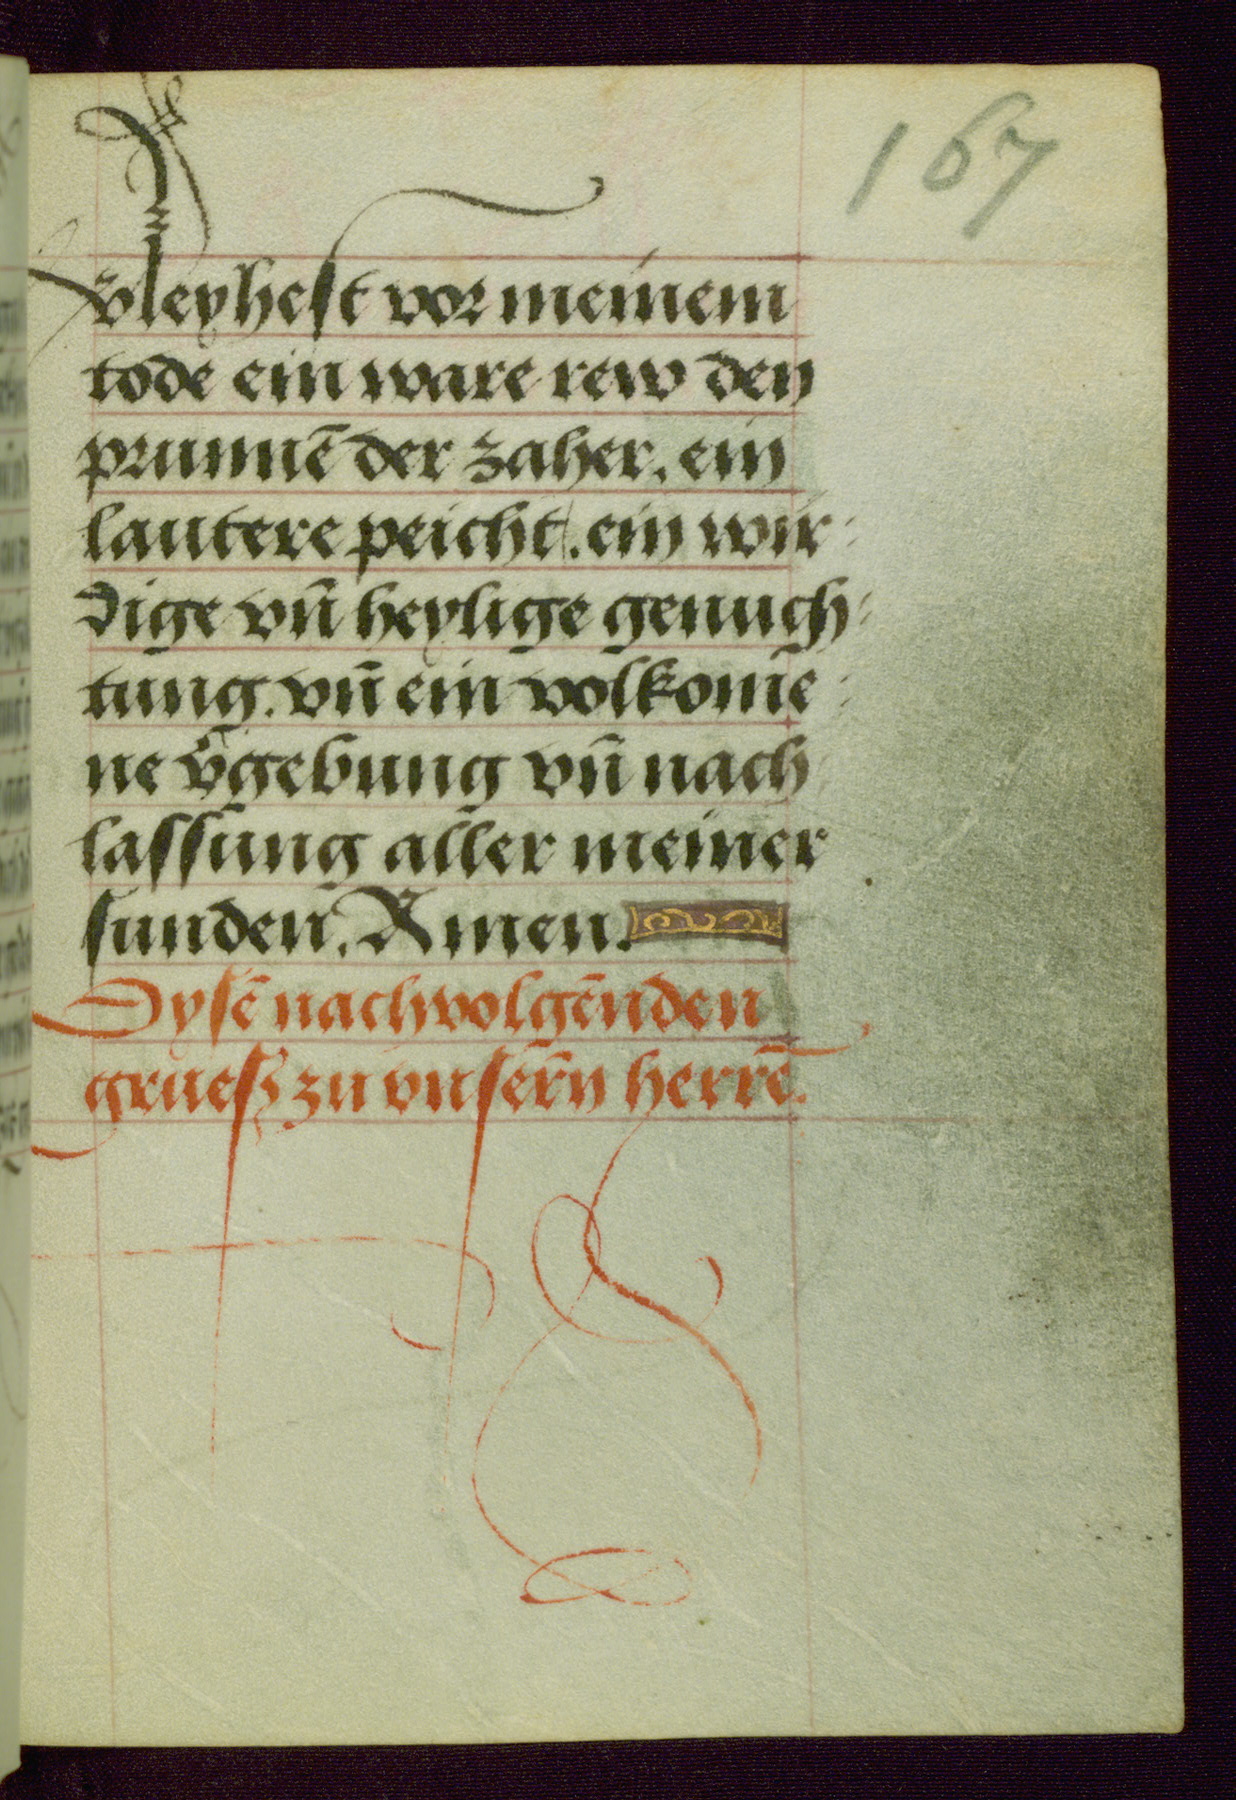 167
v̄leyhest vor meinem
tode ein ware rew den
prunnē der zaher. ein
lautere peicht. ein wir:
dige vn̄ heylige genuch:
tung. vn̄ ein volkom̄e:
ne v̄gebung vn̄ nach
lassung aller meiner
sunden. Amen.
Dysē nachvolgēnden
grueß zu vnsern̄ herrē.